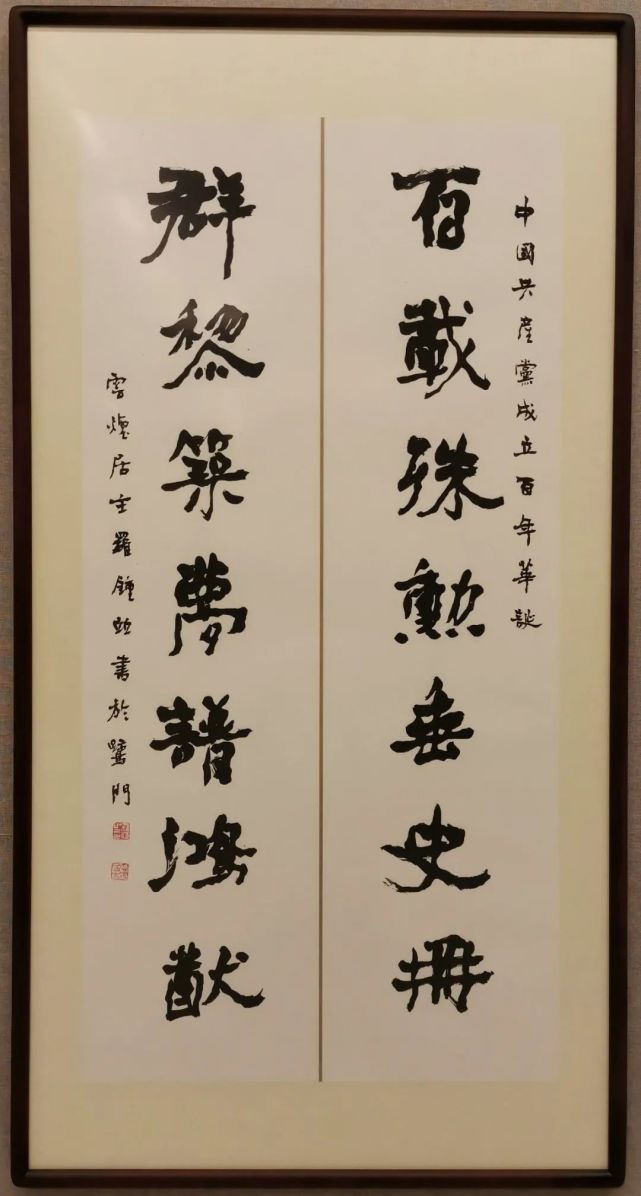 中國共產黨成立百年華誕
百載殊勳垂史冊
群黎築夢譜鴻猷
雲煙居主羅鍾書於鷺門